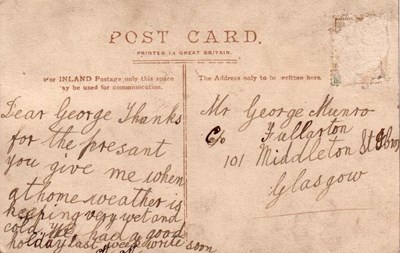 POST CARD.
PRINTED IN GREAT BRITAIN.
For INLAND Postage only this space
may be used for communication.
The Address only to be written here
Dear George Thanks
for the presant
you give me when
at home weather is
keeping very wet and
cold we had a good
holiday last week write soon
Mr George Munro
C/o Fullarton
101 Middleton St
Glasgow